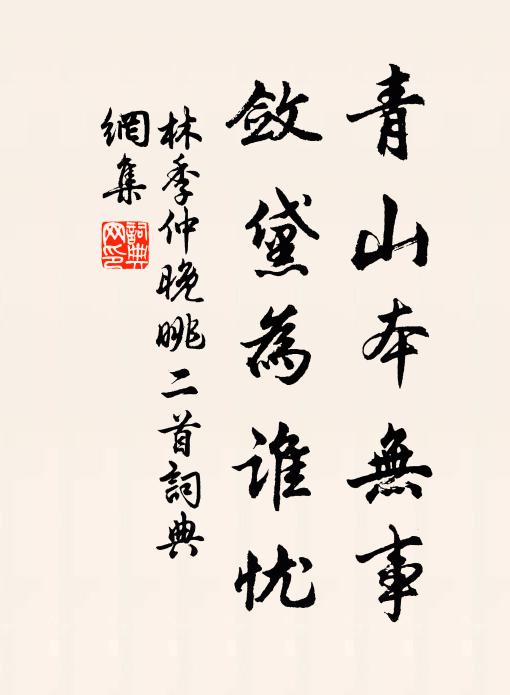 青山本無事
斂黛為誰忧
林季仲晚眺二首詞典
網集
詞典
网印